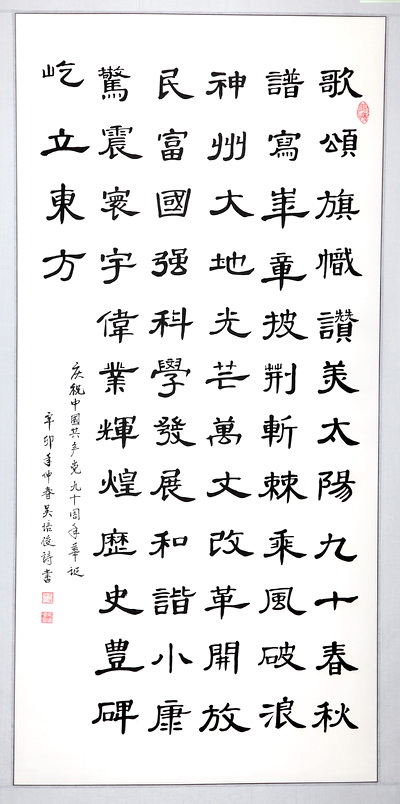 歌頌旗幟讚美太陽九十春秋
譜寫華章披荆斬棘乘風破浪
神州大地光芒萬丈改革開放
民富國强科學發展和諧小康
驚震寰宇偉業輝煌歷史豐碑
屹立東方
庆祝中國共产党九十周年華诞
辛卯年仲春吴培俊詩書